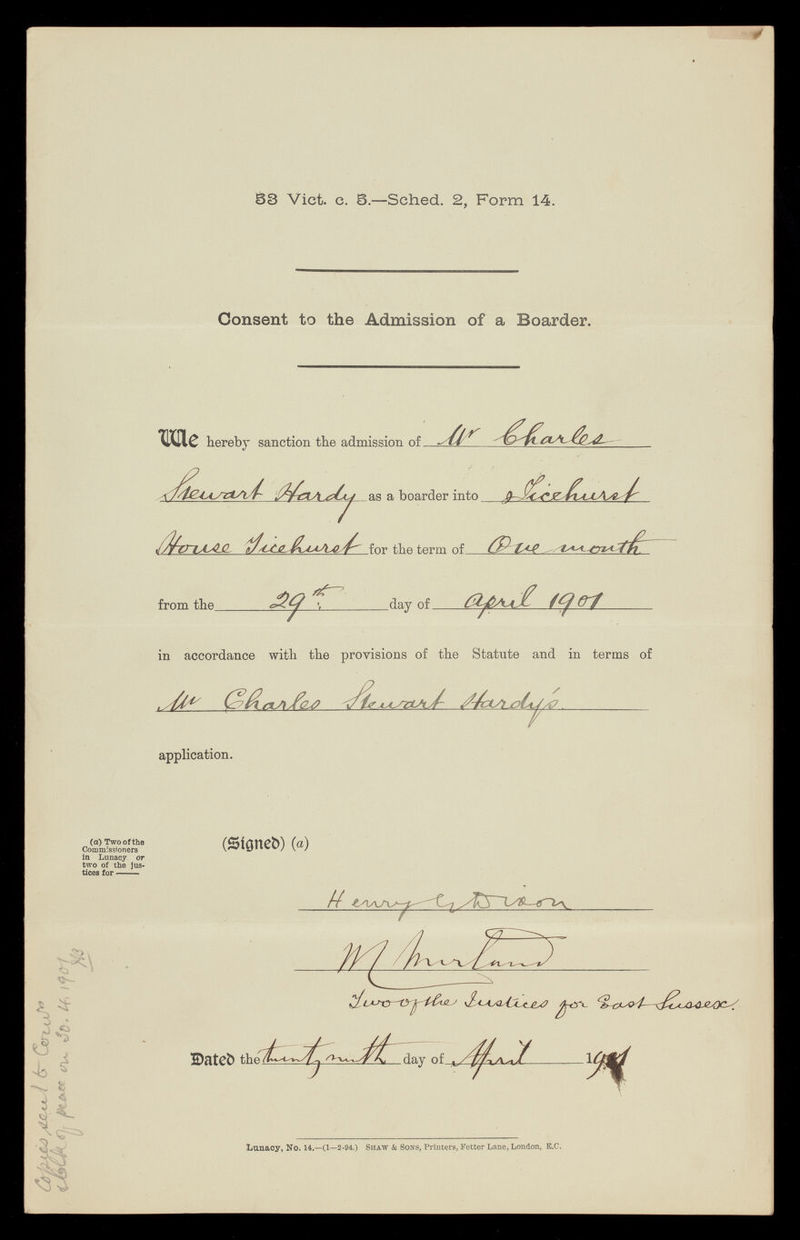 53 Vict. c. 5.—Sched. 2, Form 14.
Consent to the Admission of a Boarder.
We hereby sanction the admission of Mr Charles
Stewart Hardy as a boarder into Ticehurst
House Ticehurst for the term of One month
from the 29th day of April 1901
in accordance with the provisions of the Statute and in terms of
Mr Charles Stewart Hardy's
application.
(a) Two of the
Commissioners
in Lunacy or
two of the jus-
tices for
(Signed) (a)
Henry G Dixon
W Murland
Two of the Justices for East Sussex.
Dated the twenty ninth day of April 1901
Lunacy, No. 14.—(1—2-94.) SHAW & SONS, Printers, Fetter Lane, London, E.C.
Copies sent to Comrs
& Clk of peace on 30.4.1901